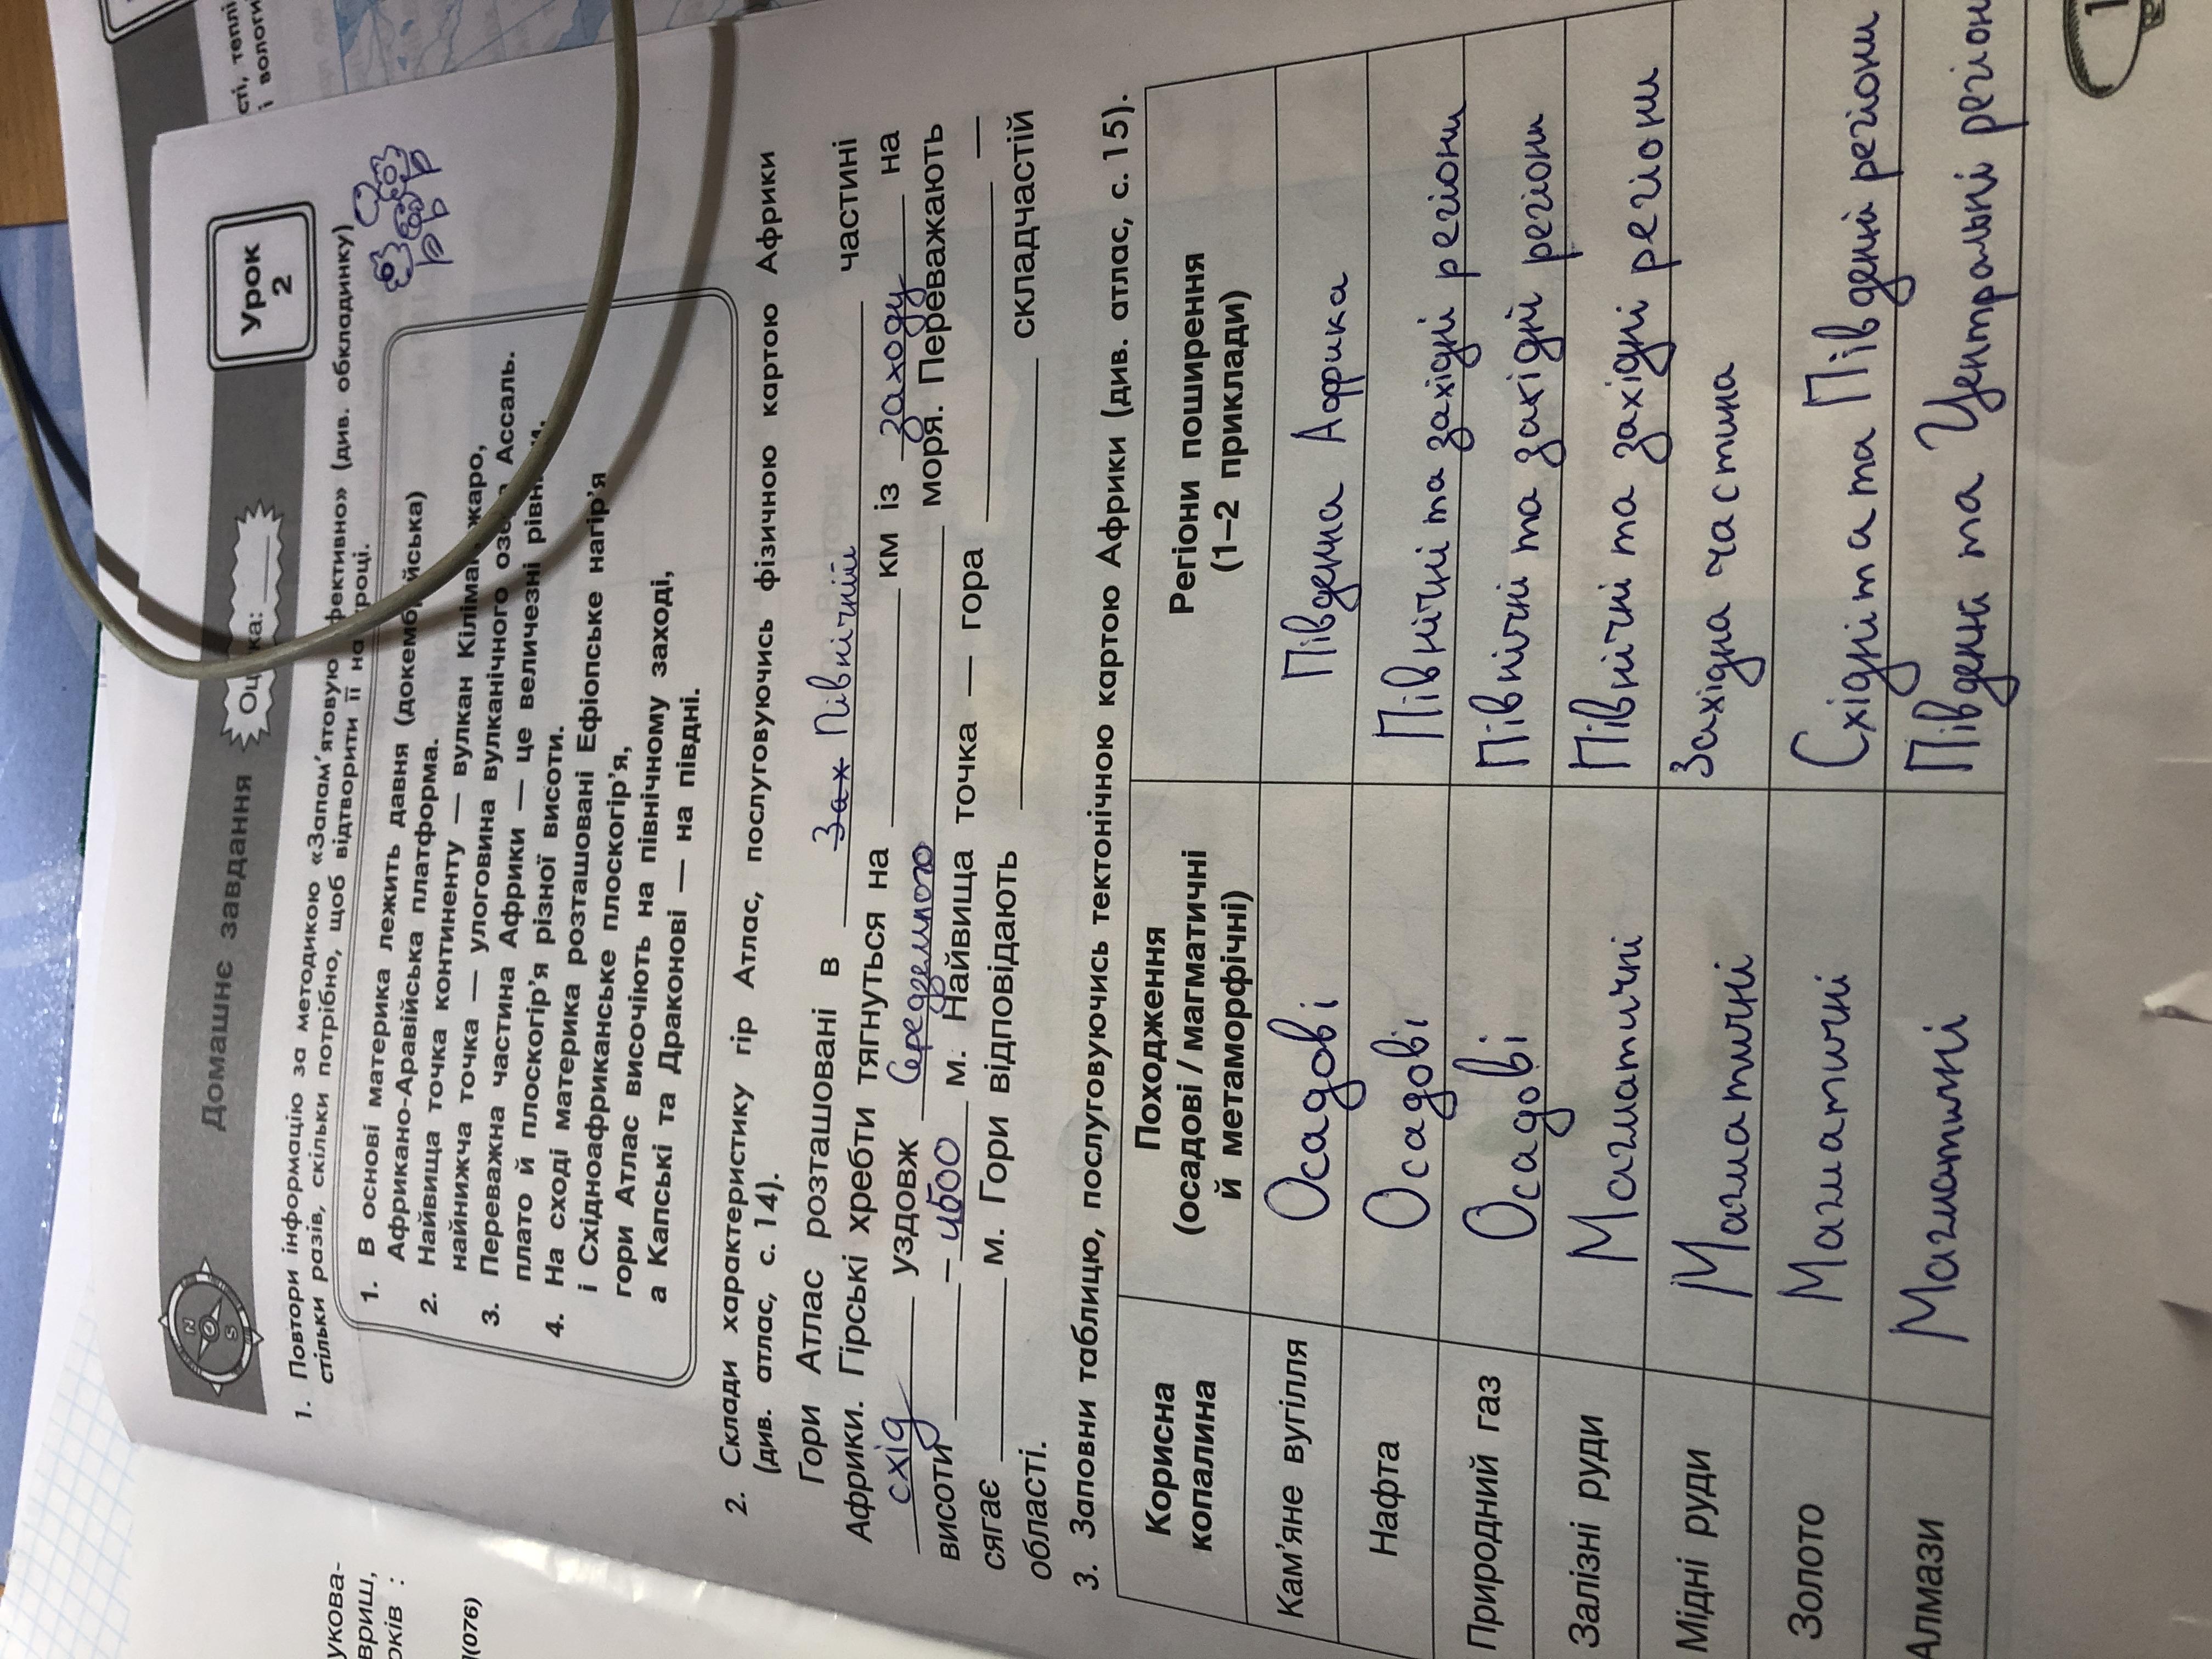 сті, теплі
і вологи
Домашнє завдання
Урок
2
1. Повтори інформацію за методикою «Запам'ятовую (див. обкладинку)
стільки разів, скільки потрібно, щоб відтворити її на
1. В основі материка лежить давня
Африкано-Аравійська платформа.
2. Найвища точка континенту — вулкан
найнижча точка — улоговина вулканічного Ассаль.
3. Переважна частина Африки — це величезні
плато й плоскогір'я різної висоти.
4. На сході материка розташовані Ефіопське нагір'я
і Східноафриканське плоскогір'я,
гори Атлас височіють на північному заході,
а Капські та Драконові — на півдні.
2. Склади характеристику гір Атлас, послуговуючись фізичною картою Африки
(див. атлас, с. 14).
Гори Атлас розташовані в Зах Північній частині
Африки. Гірські хребти тягнуться на ______ км із заходу на
схід уздовж Середземного моря. Переважають
висоти ______ – ______ м. Найвища точка — гора ______ —
сягає ______ м. Гори відповідають ______ складчастій
області.
3. Заповни таблицю, послуговуючись тектонічною картою Африки (див. атлас, с. 15).
Корисна копалина Походження (осадові / магматичні й метаморфічні) Регіони поширення (1–2 приклади)
Кам'яне вугілля Осадові Південна Африка
Нафта Осадові Північні та західні регіони
Природний газ Осадові Північні та західні регіони
Залізні руди Магматичні Північні та західні регіони
Мідні руди Магматичні Західна частина
Золото Магматичні Східні та Південі регіони
Алмази Магматичні Південі та Центральні регіон
укова-
вриш,
оків :
(076)
1